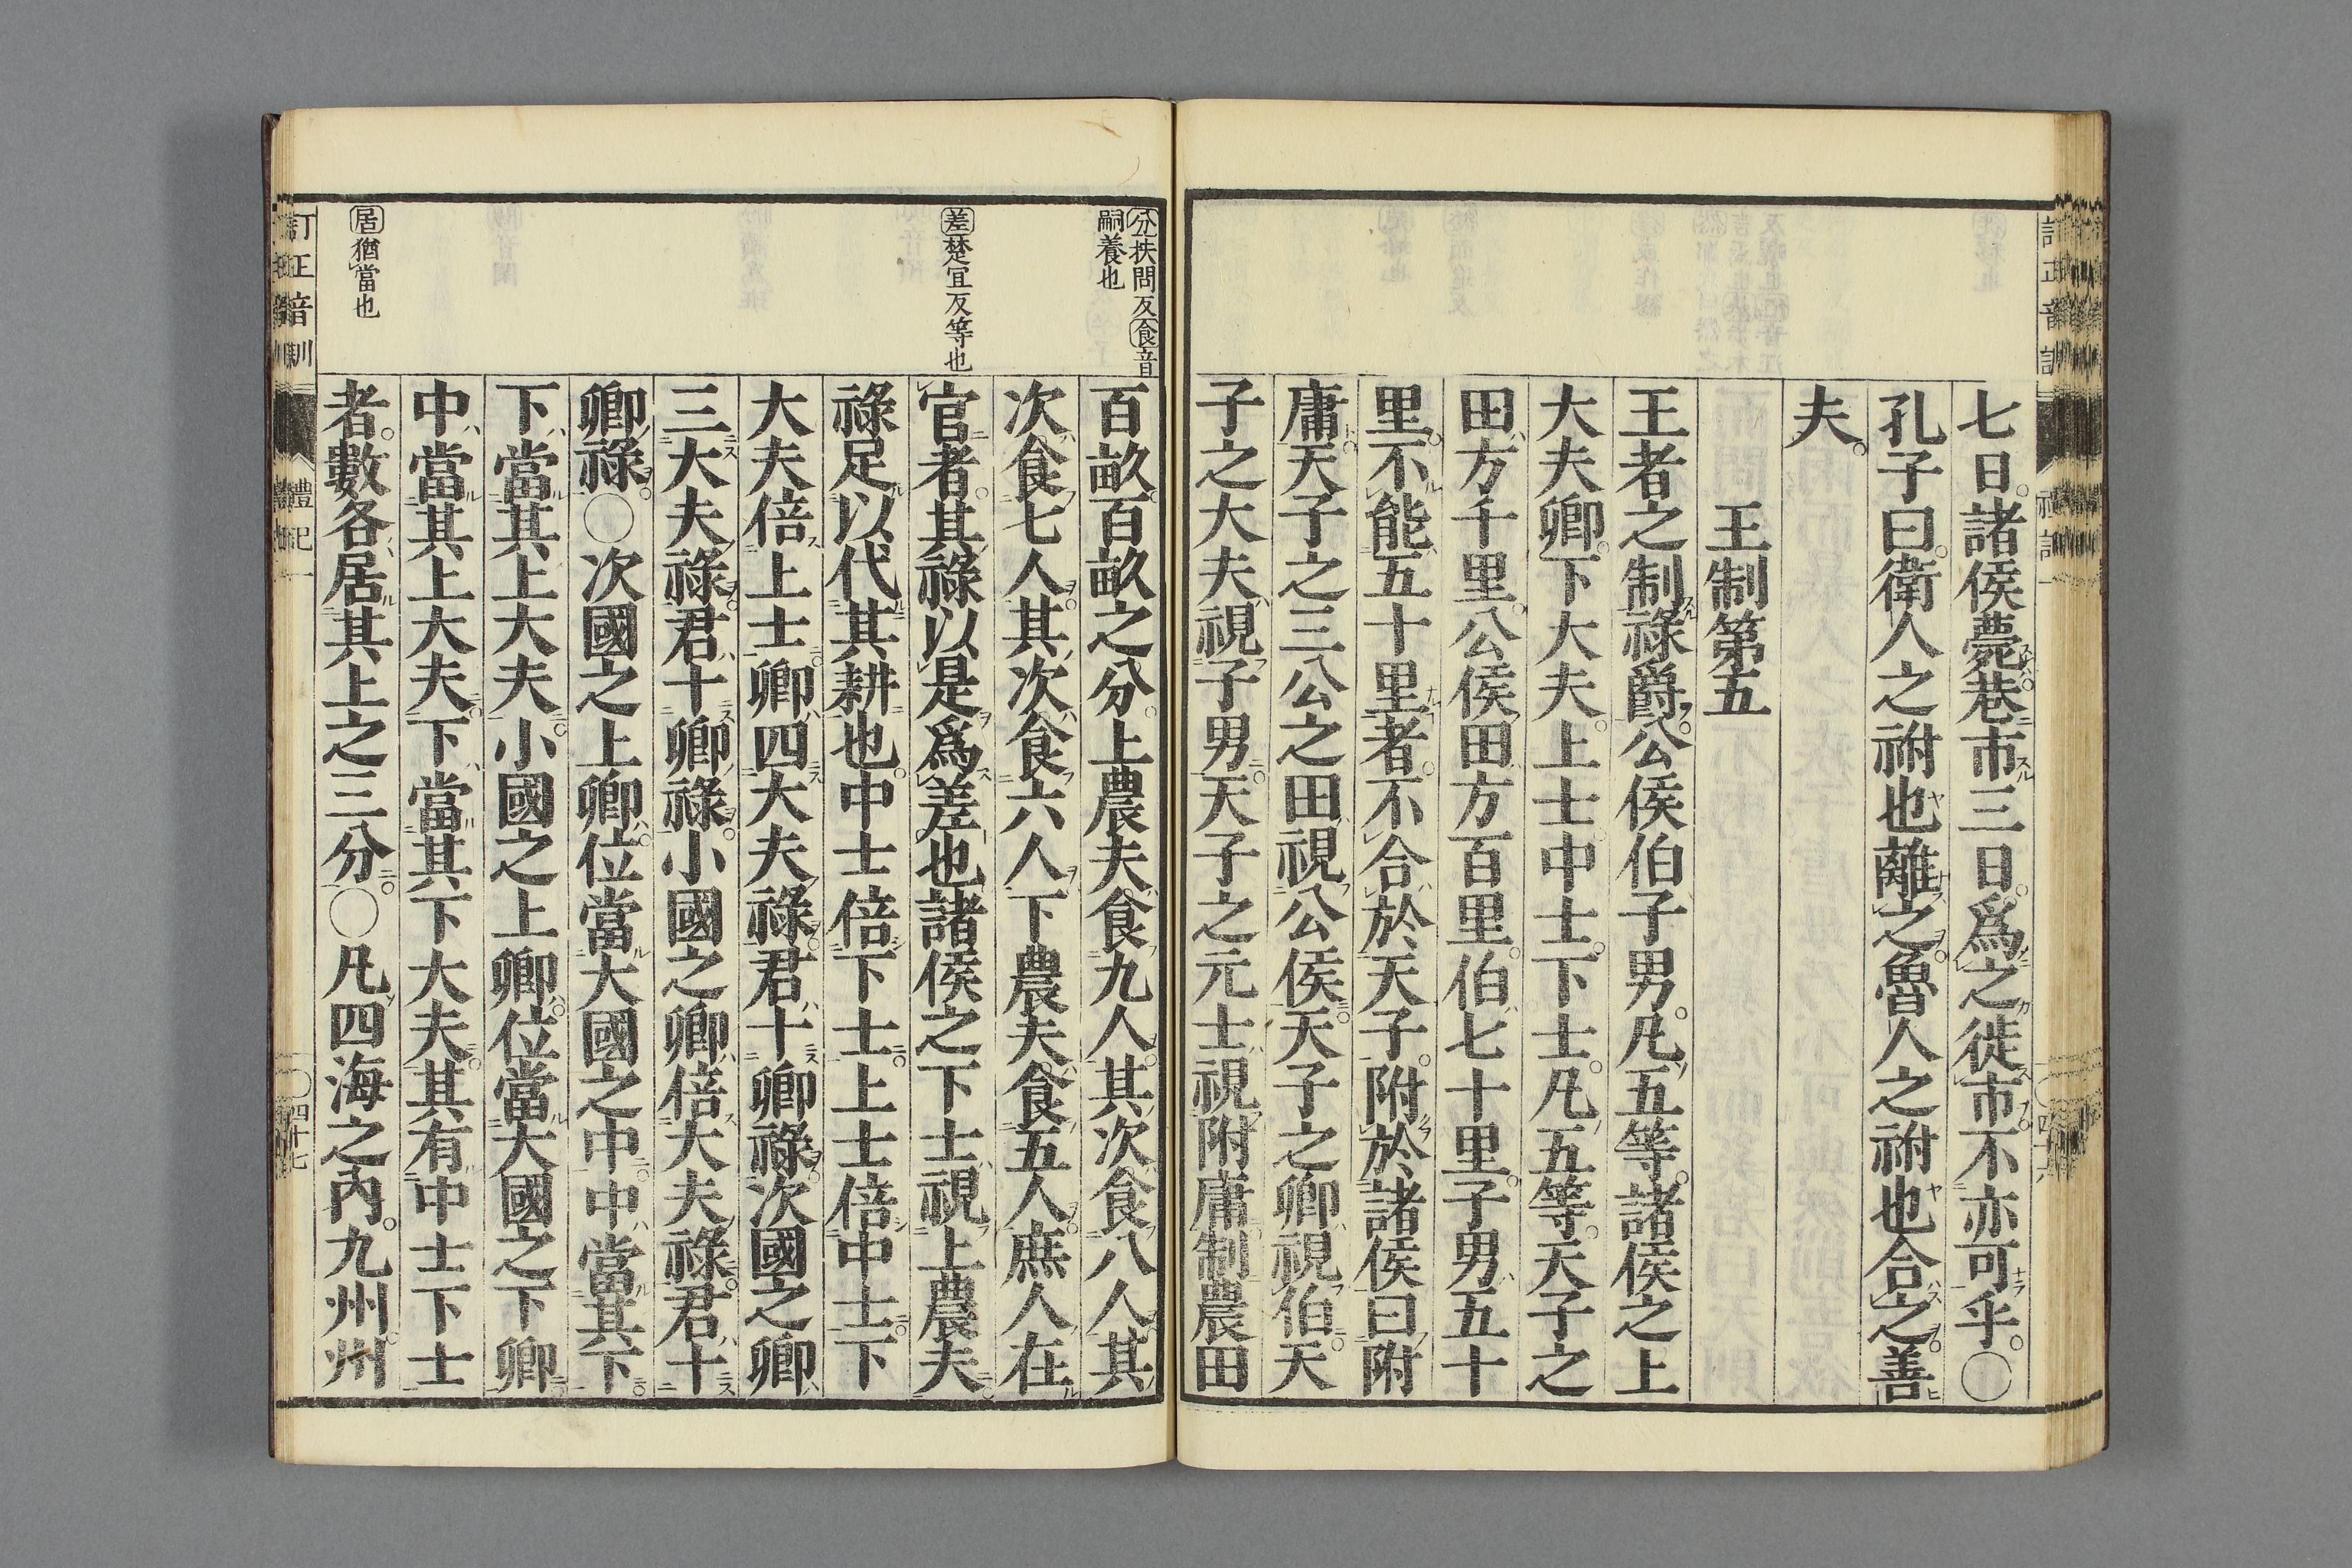 七日諸侯薨巷市三日爲之徙市不亦可乎○
孔子曰衛人之祔也離之魯人之祔也合之善
夫
王制第五
王者之制祿爵公侯伯子男凡五等諸侯之上
大夫卿下大夫上士中士下士凡五等天子之
田方千里公侯田方百里伯七十里子男五十
里不能五十里者不合於天子附於諸侯曰附
庸天子之三公之田視公侯天子之卿視伯天
子之大夫視子男天子之元士視附庸制農田
分扶問反食音
嗣養也
百畝百畝之分上農夫食九人其次食八人其
次食七人其次食六人下農夫食五人庶人在
差楚宜反等也
官者其祿以是爲差也諸侯之下士視上農夫
祿足以代其耕也中士倍下士上士倍中士下
大夫倍上士卿四大夫祿君十卿祿次國之卿
三大夫祿君十卿祿小國之卿倍大夫祿君十
卿祿○次國之上卿位當大國之中中當其下
下當其上大夫小國之上卿位當大國之下卿
中當其上大夫下當其下大夫其有中士下士
居猶當也
者數各居其上之三分○凡四海之内九州州
訂正音訓
禮記一
○四十七